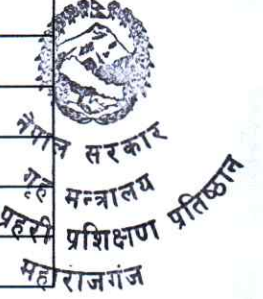 नेपाल सरकार
गृह मन्त्रालय
प्रहरी प्रशिक्षण प्रतिष्ठान
महाराजगंज